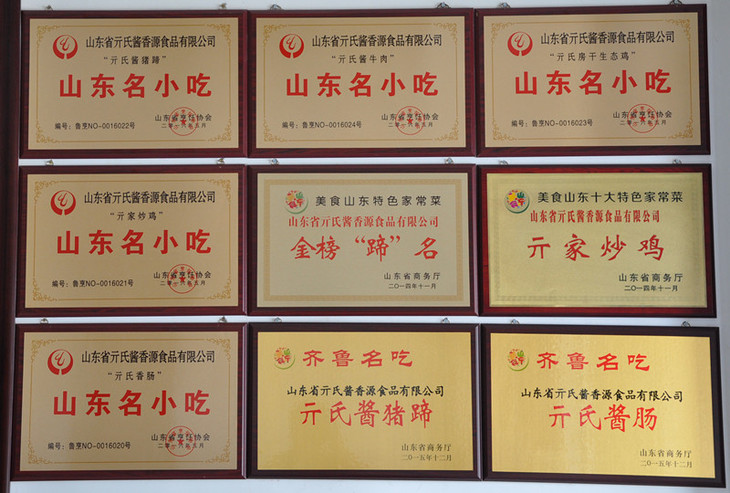 山东省亓氏酱香源食品有限公司
“亓氏酱猪蹄”
山东名小吃
山东省烹饪协会
编号：鲁烹NO-0016022号
二零一六年五月
山东省亓氏酱香源食品有限公司
“亓氏酱牛肉”
山东名小吃
山东省烹饪协会
编号：鲁烹NO-0016024号
二零一六年五月
山东省亓氏酱香源食品有限公司
“亓氏房干生态鸡”
山东名小吃
山东省烹饪协会
编号：鲁烹NO-0016023号
二零一六年五月
山东省亓氏酱香源食品有限公司
“亓家炒鸡”
山东名小吃
山东省烹饪协会
编号：鲁烹NO-0016021号
二零一六年五月
美食山东特色家常菜
山东省亓氏酱香源食品有限公司
金榜“蹄”名
山东省商务厅
二〇一四年十一月
美食山东十大特色家常菜
山东省亓氏酱香源食品有限公司
亓家炒鸡
山东省商务厅
二〇一四年十一月
山东省亓氏酱香源食品有限公司
“亓氏香肠”
山东名小吃
山东省烹饪协会
编号：鲁烹NO-0016020号
二零一六年五月
齐鲁名吃
山东省亓氏酱香源食品有限公司
亓氏酱猪蹄
山东省商务厅
二〇一五年十二月
齐鲁名吃
山东省亓氏酱香源食品有限公司
亓氏酱肠
山东省商务厅
二〇一五年十二月